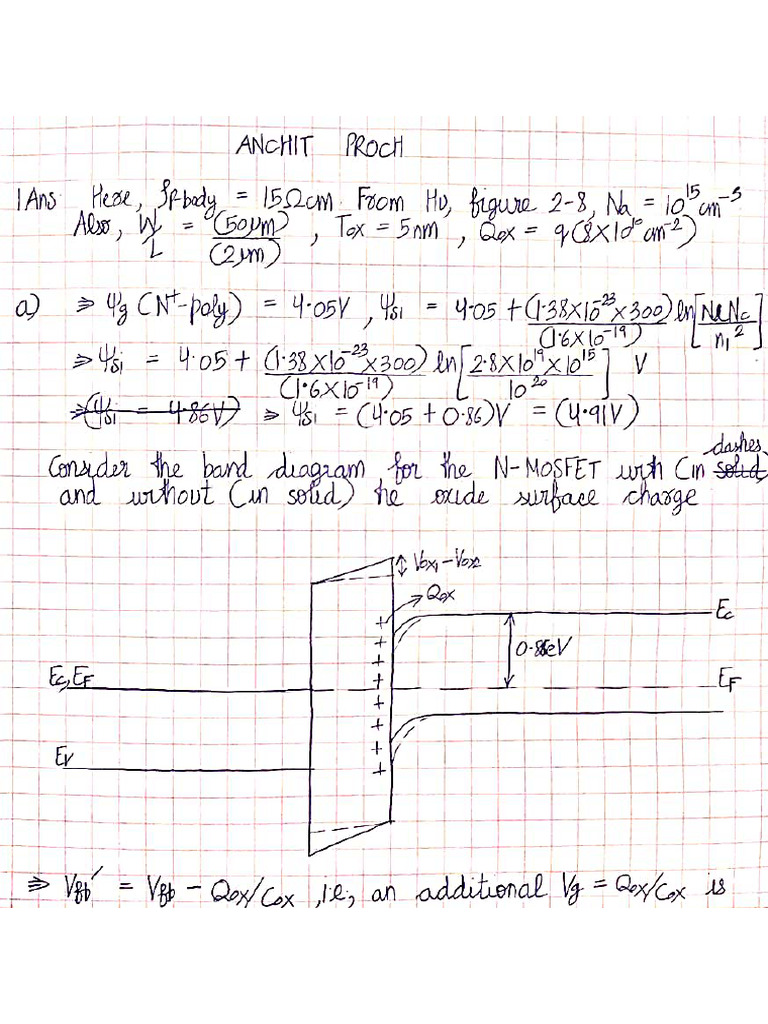 ANCHIT PROCH
1Ans Here, ρp-body = 15Ωcm. From Hu, figure 2-8, Na = 10^15 cm^-3
Also, W/L = (50μm)/(2μm) , Tox = 5nm , Qox = q(8×10^10 cm^-2)
a) ⇒ Ψg (N+-poly) = 4.05V , Ψsi = 4.05 + (1.38×10^-23×300)/(1.6×10^-19) ln[NaNc/ni^2]
⇒ Ψsi = 4.05 + (1.38×10^-23×300)/(1.6×10^-19) ln[2.8×10^19×10^15/10^20] V
⇒ (Ψsi = 4.86V) ⇒ Ψsi = (4.05 + 0.86)V = (4.91V)
dashes
Consider the band diagram for the N-MOSFET with (in solid)
and without (in solid) the oxide surface charge
Vox1-Vox2
Qox
Ec
0.86eV
Ec,EF
EF
Ev
+
+
+
+
+
+
+
+
⇒ Vfb' = Vfb - Qox/Cox ,i.e, an additional Vg = Qox/Cox is